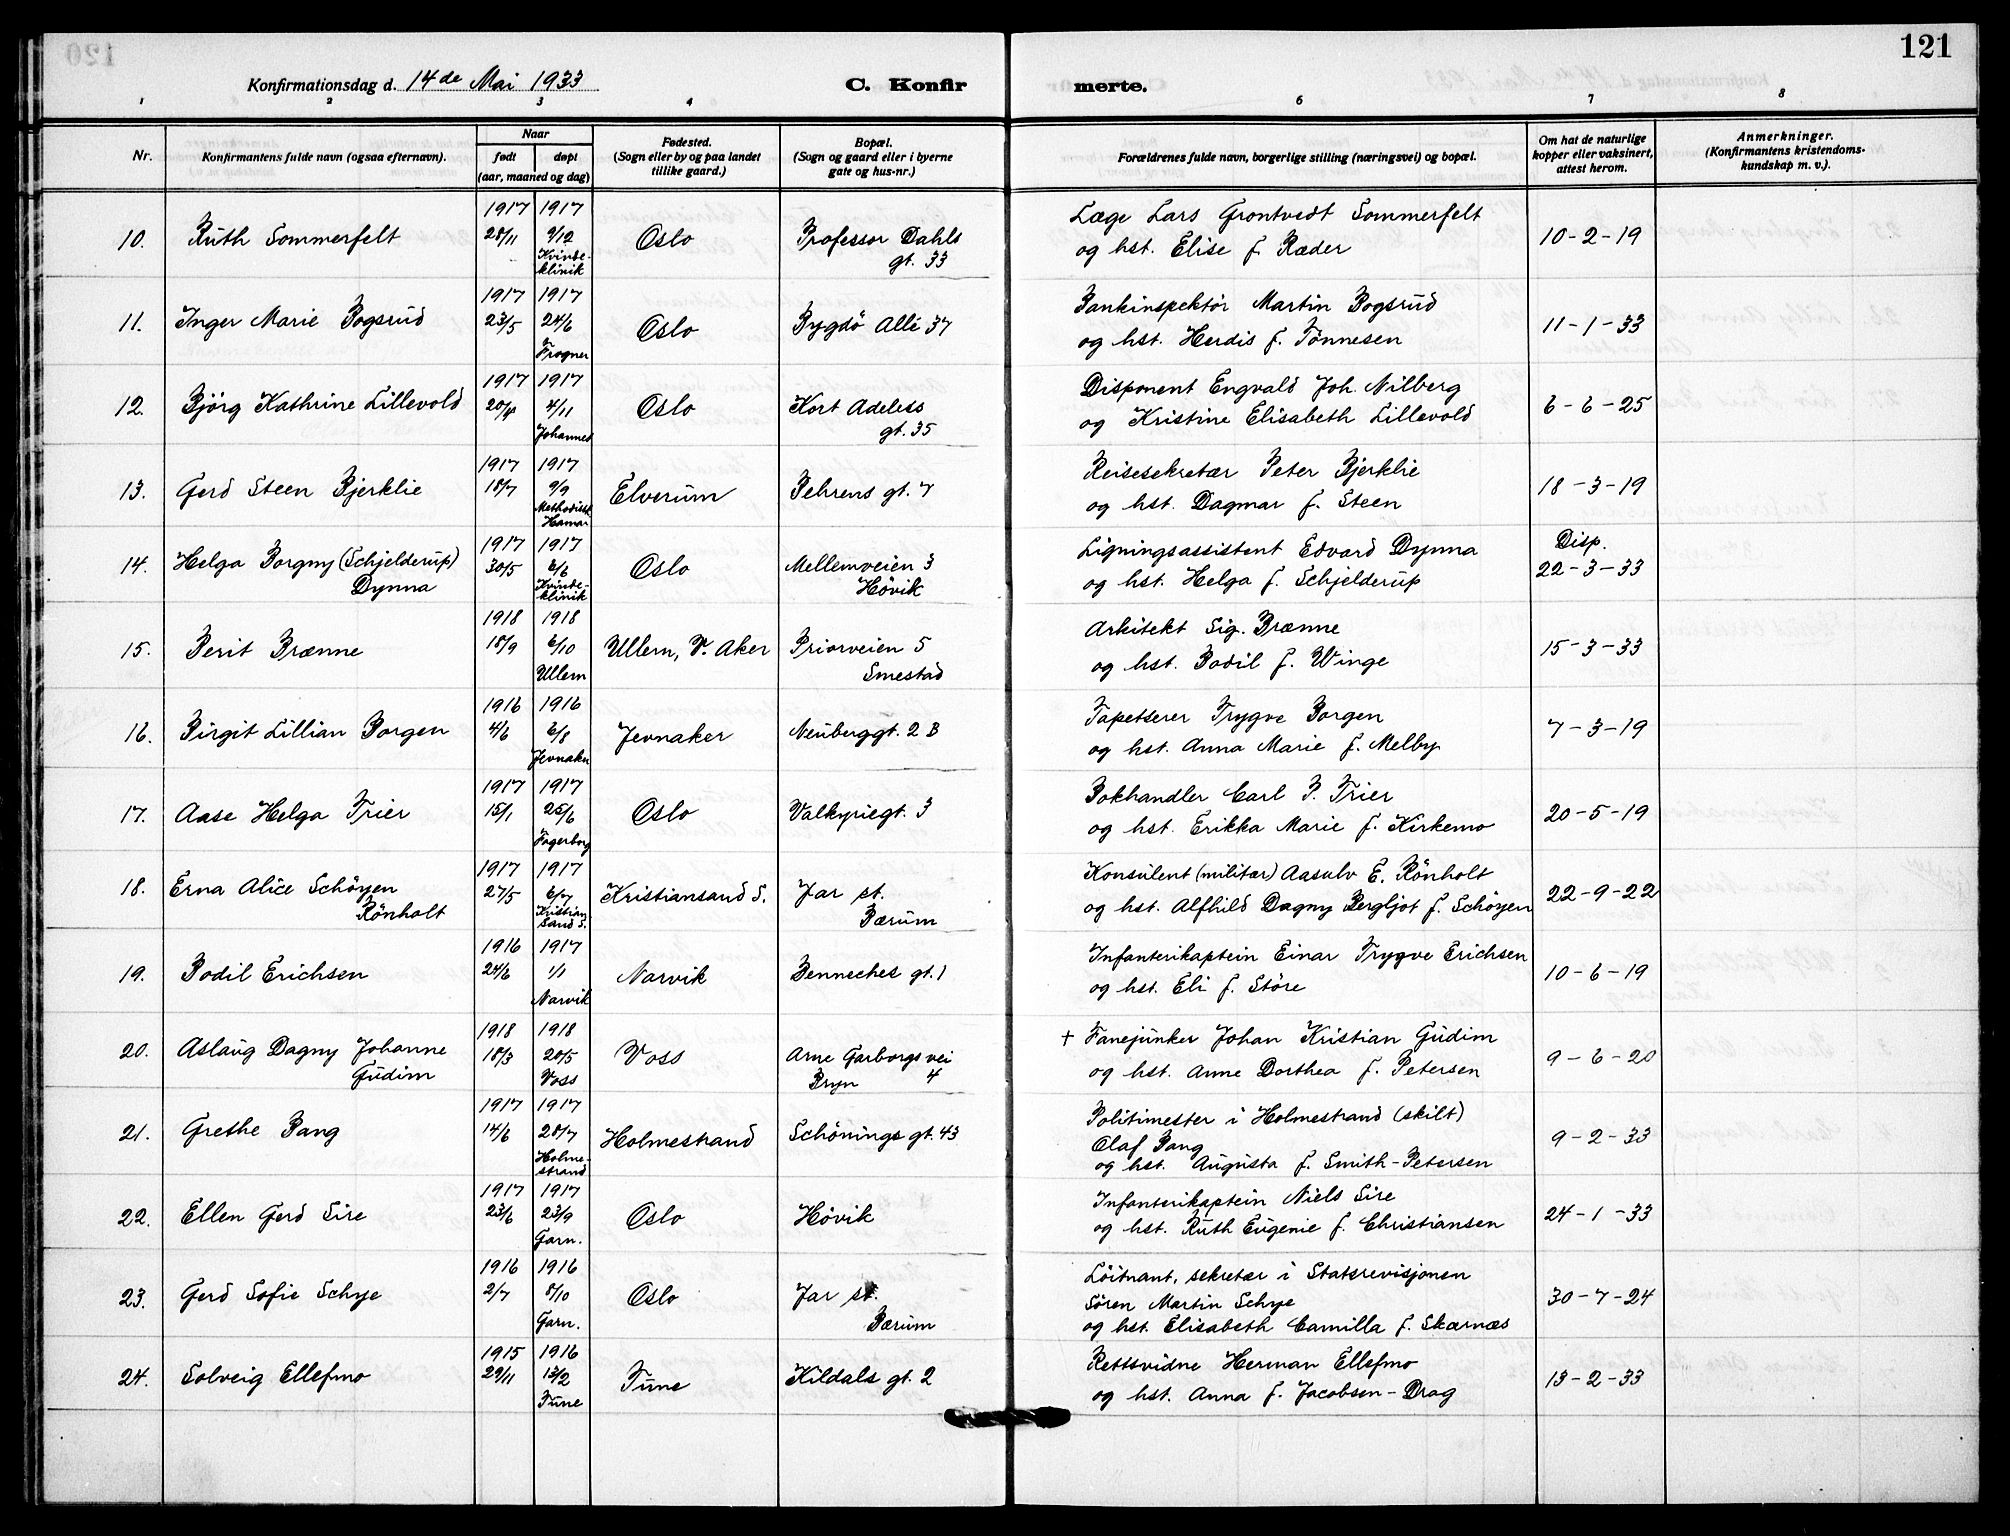 121
Konfirmationsdag d. 14de Mai 1933
C. Konfir
merte.
1 2 3 4 6 7 8
Nr.
Konfirmantens fulde navn (ogsaa efternavn).
Naar
født døpt
(aar, maaned og dag)
Fødested.
(Sogn eller by og paa landet
tillike gaard.)
Bopæl.
(Sogn og gaard eller i byerne
gate og hus-nr.)
Forældrenes fulde navn, borgerlige stilling (næringsvei) og bopæl.
Om hat de naturlige
kopper eller vaksinert,
attest herom.
Anmerkninger.
(Konfirmantens kristendoms-
kundskap m. v.).
1917 1917 Læge Lars Grontvedt Sommerfelt
10. Ruth Sommerfelt 28/11 9/12 Oslo Professor Dahls 10-2-19
Kvinde- gt. 33 og hst. Elise f. Ræder
klinik
1917 1917 Bankinspektør Martin Bogsrud
11. Inger Marie Bogsrud 23/5 24/6 Oslo Bygdö Allé 37 11-1-33
Frogner og hst. Herdis f. Tönnesen
1917 1917 Disponent Engvald Joh. Nilberg
12. Björg Kathrine Lillevold 4/11 Oslo Kort Adelers 6-6-25
Johannes gt. 35 og Kristine Elisabeth Lillevold
1917 1917 Reisesekretær Peter Bjerklie
13. Gerd Steen Bjerklie 18/7 9/9 Elverum Behrens gt. 7 18-3-19
Methodistk. og hst. Dagmar f. Steen
Hamar
1917 1917 Ligningsassistent Edvard Dynna Disp.
14. Helga Borgny (Schjelderup) 30/5 6/6 Oslo Mellemveien 3 22-3-33
Dynna Kvinde- Hövik og hst. Helga f. Schjelderup
klinik
1918 1918 Arkitekt Sig. Brænne
15. Berit Brænne 18/9 6/10 Ullern, V. Aker Priorveien 5 15-3-33
Ullern Smestad og hst. Bodil f. Winge
1916 1916 Tapetserer Trygve Borgen
16. Birgit Lillian Borgen 4/6 6/8 Jevnaker Neuberggt. 2 B 7-3-19
Jevnaker og hst. Anna Marie f. Melby
1917 1917 Bokhandler Carl P. Trier
17. Aase Helga Trier 15/1 25/6 Oslo Valkyriegt. 3 20-5-19
Fagerborg og hst. Erikka Marie f. Kirkemo
1917 1917 Konsulent (militær) Aasulv E. Rönholt
18. Erna Alice Schöyen 27/5 6/7 Kristiansand S. Jar st. 22-9-22
Rönholt Kristian Bærum og hst. Alfhild Dagny Bergljot f. Schöyen
sand S.
1916 1917 Infanterikaptein Einar Trygve Erichsen
19. Bodil Erichsen 24/6 1/1 Narvik Benneches gt. 1 10-6-19
Narvik og hst. Eli f. Störe
1918 1918 + Fanejunker Johan Kristian Gudim
20. Aslaug Dagny Johanne 18/3 20/5 Voss Arne Garborgs vei 9-6-20
Gudim Voss Bryn 4 og hst. Anne Dorthea f. Petersen
1917 1917 Politimester i Holmestrand (skilt)
21. Grethe Bang 14/6 28/7 Holmestrand Schönings gt. 43 Olaf Bang 9-2-33
Holme- og hst. Augusta f. Smith-Petersen
strand
1917 1917 Infanterikaptein Niels Sire
22. Ellen Gerd Sire 23/6 23/9 Oslo Hövik 24-1-33
Garn. og hst. Ruth Eugenie f. Christiansen
1916 1916 Löitnant, sekretær i Statsrevisjonen
23. Gerd Sofie Schye 2/7 8/10 Oslo Jar st. Sören Martin Schye 30-7-24
Garn. Bærum og hst. Elisabeth Camilla f. Skarnæs
1915 1916 Rettsvidne Herman Ellefmo
24. Solveig Ellefmo 29/11 13/2 Tune Kildals gt. 2 13-2-33
Tune og hst. Anna f. Jacobsen-Drag